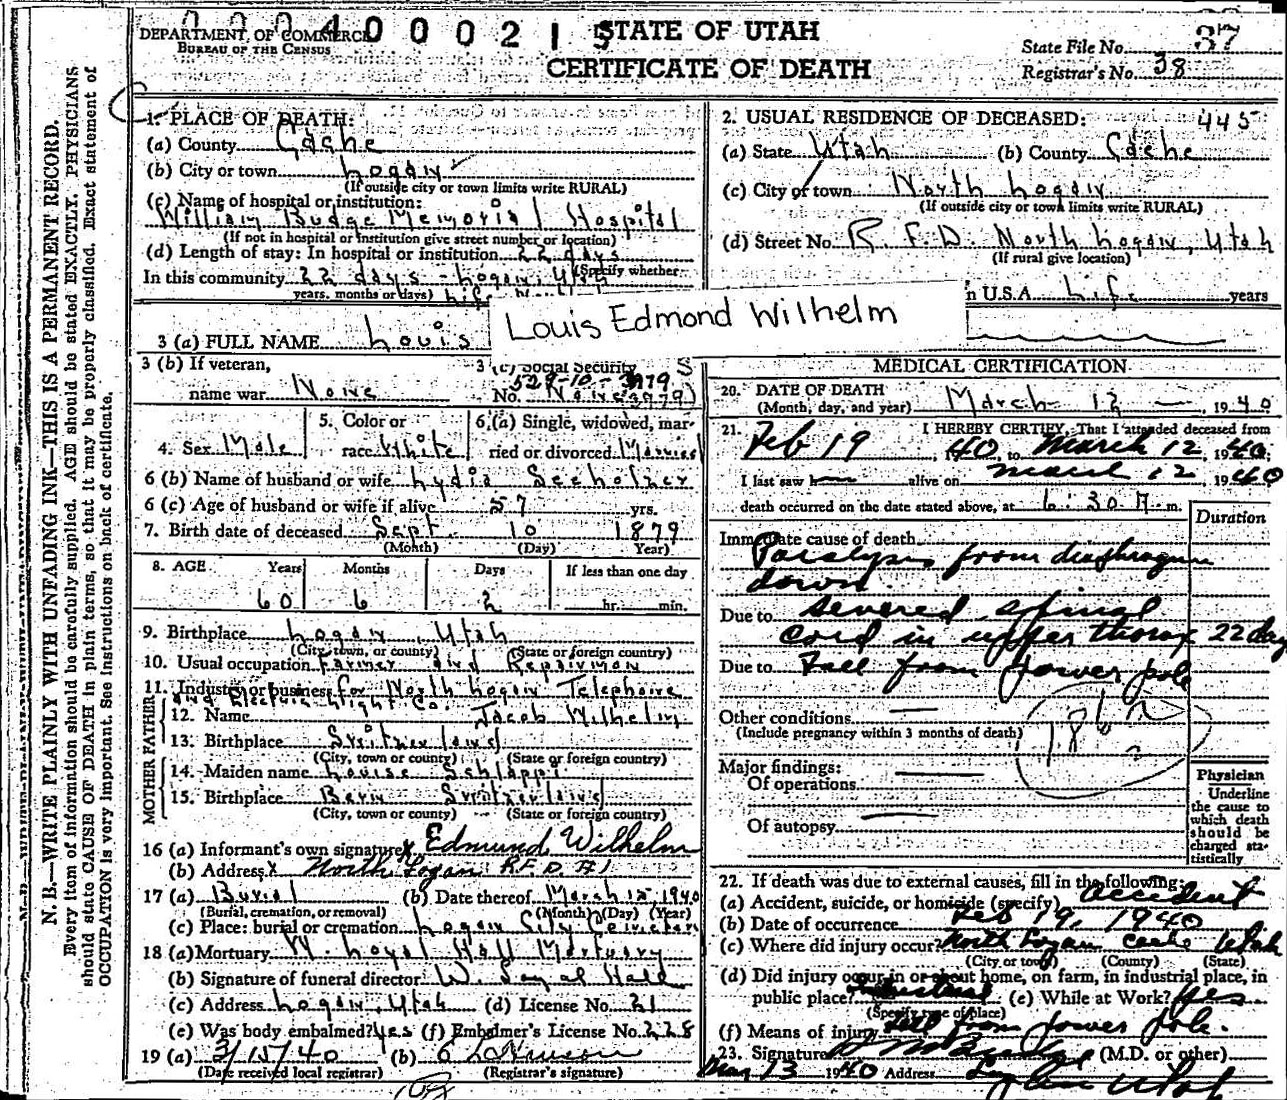 DEPARTMENT OF COMMERCE
BUREAU OF THE CENSUS
000400 0 0 2 1 5
STATE OF UTAH
CERTIFICATE OF DEATH
State File No. 37
Registrar's No. 38
N. B.—WRITE PLAINLY WITH UNFADING INK—THIS IS A PERMANENT RECORD.
Every item of information should be carefully supplied. AGE should be stated EXACTLY. PHYSICIANS
should state CAUSE OF DEATH in plain terms, so that it may be properly classified. Exact statement of
OCCUPATION is very important. See instructions on back of certificate.
1. PLACE OF DEATH:
(a) County Cache
(b) City or town Logan
(If outside city or town limits write RURAL)
(c) Name of hospital or institution:
William Budge Memorial Hospital
(If not in hospital or institution give street number or location)
(d) Length of stay: In hospital or institution 22 days
(Specify whether
In this community 22 days - Logan, Utah
years, months or days)
2. USUAL RESIDENCE OF DECEASED: 445
(a) State Utah (b) County Cache
(c) City or town North Logan
(If outside city or town limits write RURAL)
(d) Street No. R. F. D. North Logan, Utah
(If rural give location)
n U.S.A. Life years
3 (a) FULL NAME Louis
Louis Edmond Wilhelm
3 (b) If veteran,
name war None
3 (c) Social Security
529-10-3979
No. None
4. Sex Male
5. Color or
race White
6.(a) Single, widowed, mar-
ried or divorced Married
6 (b) Name of husband or wife Lydia Seeholzer
6 (c) Age of husband or wife if alive 57 yrs.
7. Birth date of deceased Sept. 10 1879
(Month) (Day) Year)
8. AGE Years Months Days If less than one day
60 6 2 hr. min.
9. Birthplace Logan, Utah
(City, town, or county) (State or foreign country)
10. Usual occupation Farmer and Repairman
11. Industry or business for North Logan Telephone
and Electric Light Co.
FATHER
12. Name Jacob Wilhelm
13. Birthplace Switzerland
(City, town or county) (State or foreign country)
MOTHER
14. Maiden name Louise Schlappi
15. Birthplace Bern Switzerland
(City, town or county) (State or foreign country)
16 (a) Informant's own signature x Edmund Wilhelm
(b) Address x North Logan R.F.D. #1
17 (a) Burial (b) Date thereof March 15, 1940
(Burial, cremation, or removal) (Month) (Day) (Year)
(c) Place: burial or cremation Logan City Cemetery
18 (a) Mortuary W. Loyal Hall Mortuary
(b) Signature of funeral director W. Loyal Hall
(c) Address Logan, Utah (d) License No. 21
(e) Was body embalmed? Yes (f) Embalmer's License No. 228
19 (a) 3/15/40 (b)
(Date received local registrar) (Registrar's signature)
MEDICAL CERTIFICATION
20. DATE OF DEATH
(Month, day, and year) March 12 — , 1940
21. I HEREBY CERTIFY, That I attended deceased from
Feb 19, 1940, to March 12, 1940;
I last saw h alive on March 12, 1940
death occurred on the date stated above, at 6:30 A. m.
Duration
Immediate cause of death
Paralysis from diaphragm
down
Due to severed spinal
cord in upper thorax 22 days
Due to Fall from power pole
Other conditions
(Include pregnancy within 3 months of death)
Major findings:
Of operations
Of autopsy
Physician
Underline
the cause to
which death
should be
charged sta-
tistically
22. If death was due to external causes, fill in the following:
(a) Accident, suicide, or homicide (specify) accident
(b) Date of occurrence Feb 19, 1940
(c) Where did injury occur? North Logan Cache Utah
(City or town) (County) (State)
(d) Did injury occur in or about home, on farm, in industrial place, in
public place? Industrial (e) While at Work? Yes
(Specify type of place)
(f) Means of injury Fall from power pole.
23. Signature (M.D. or other)
Mar 13 1940 Address Logan Utah